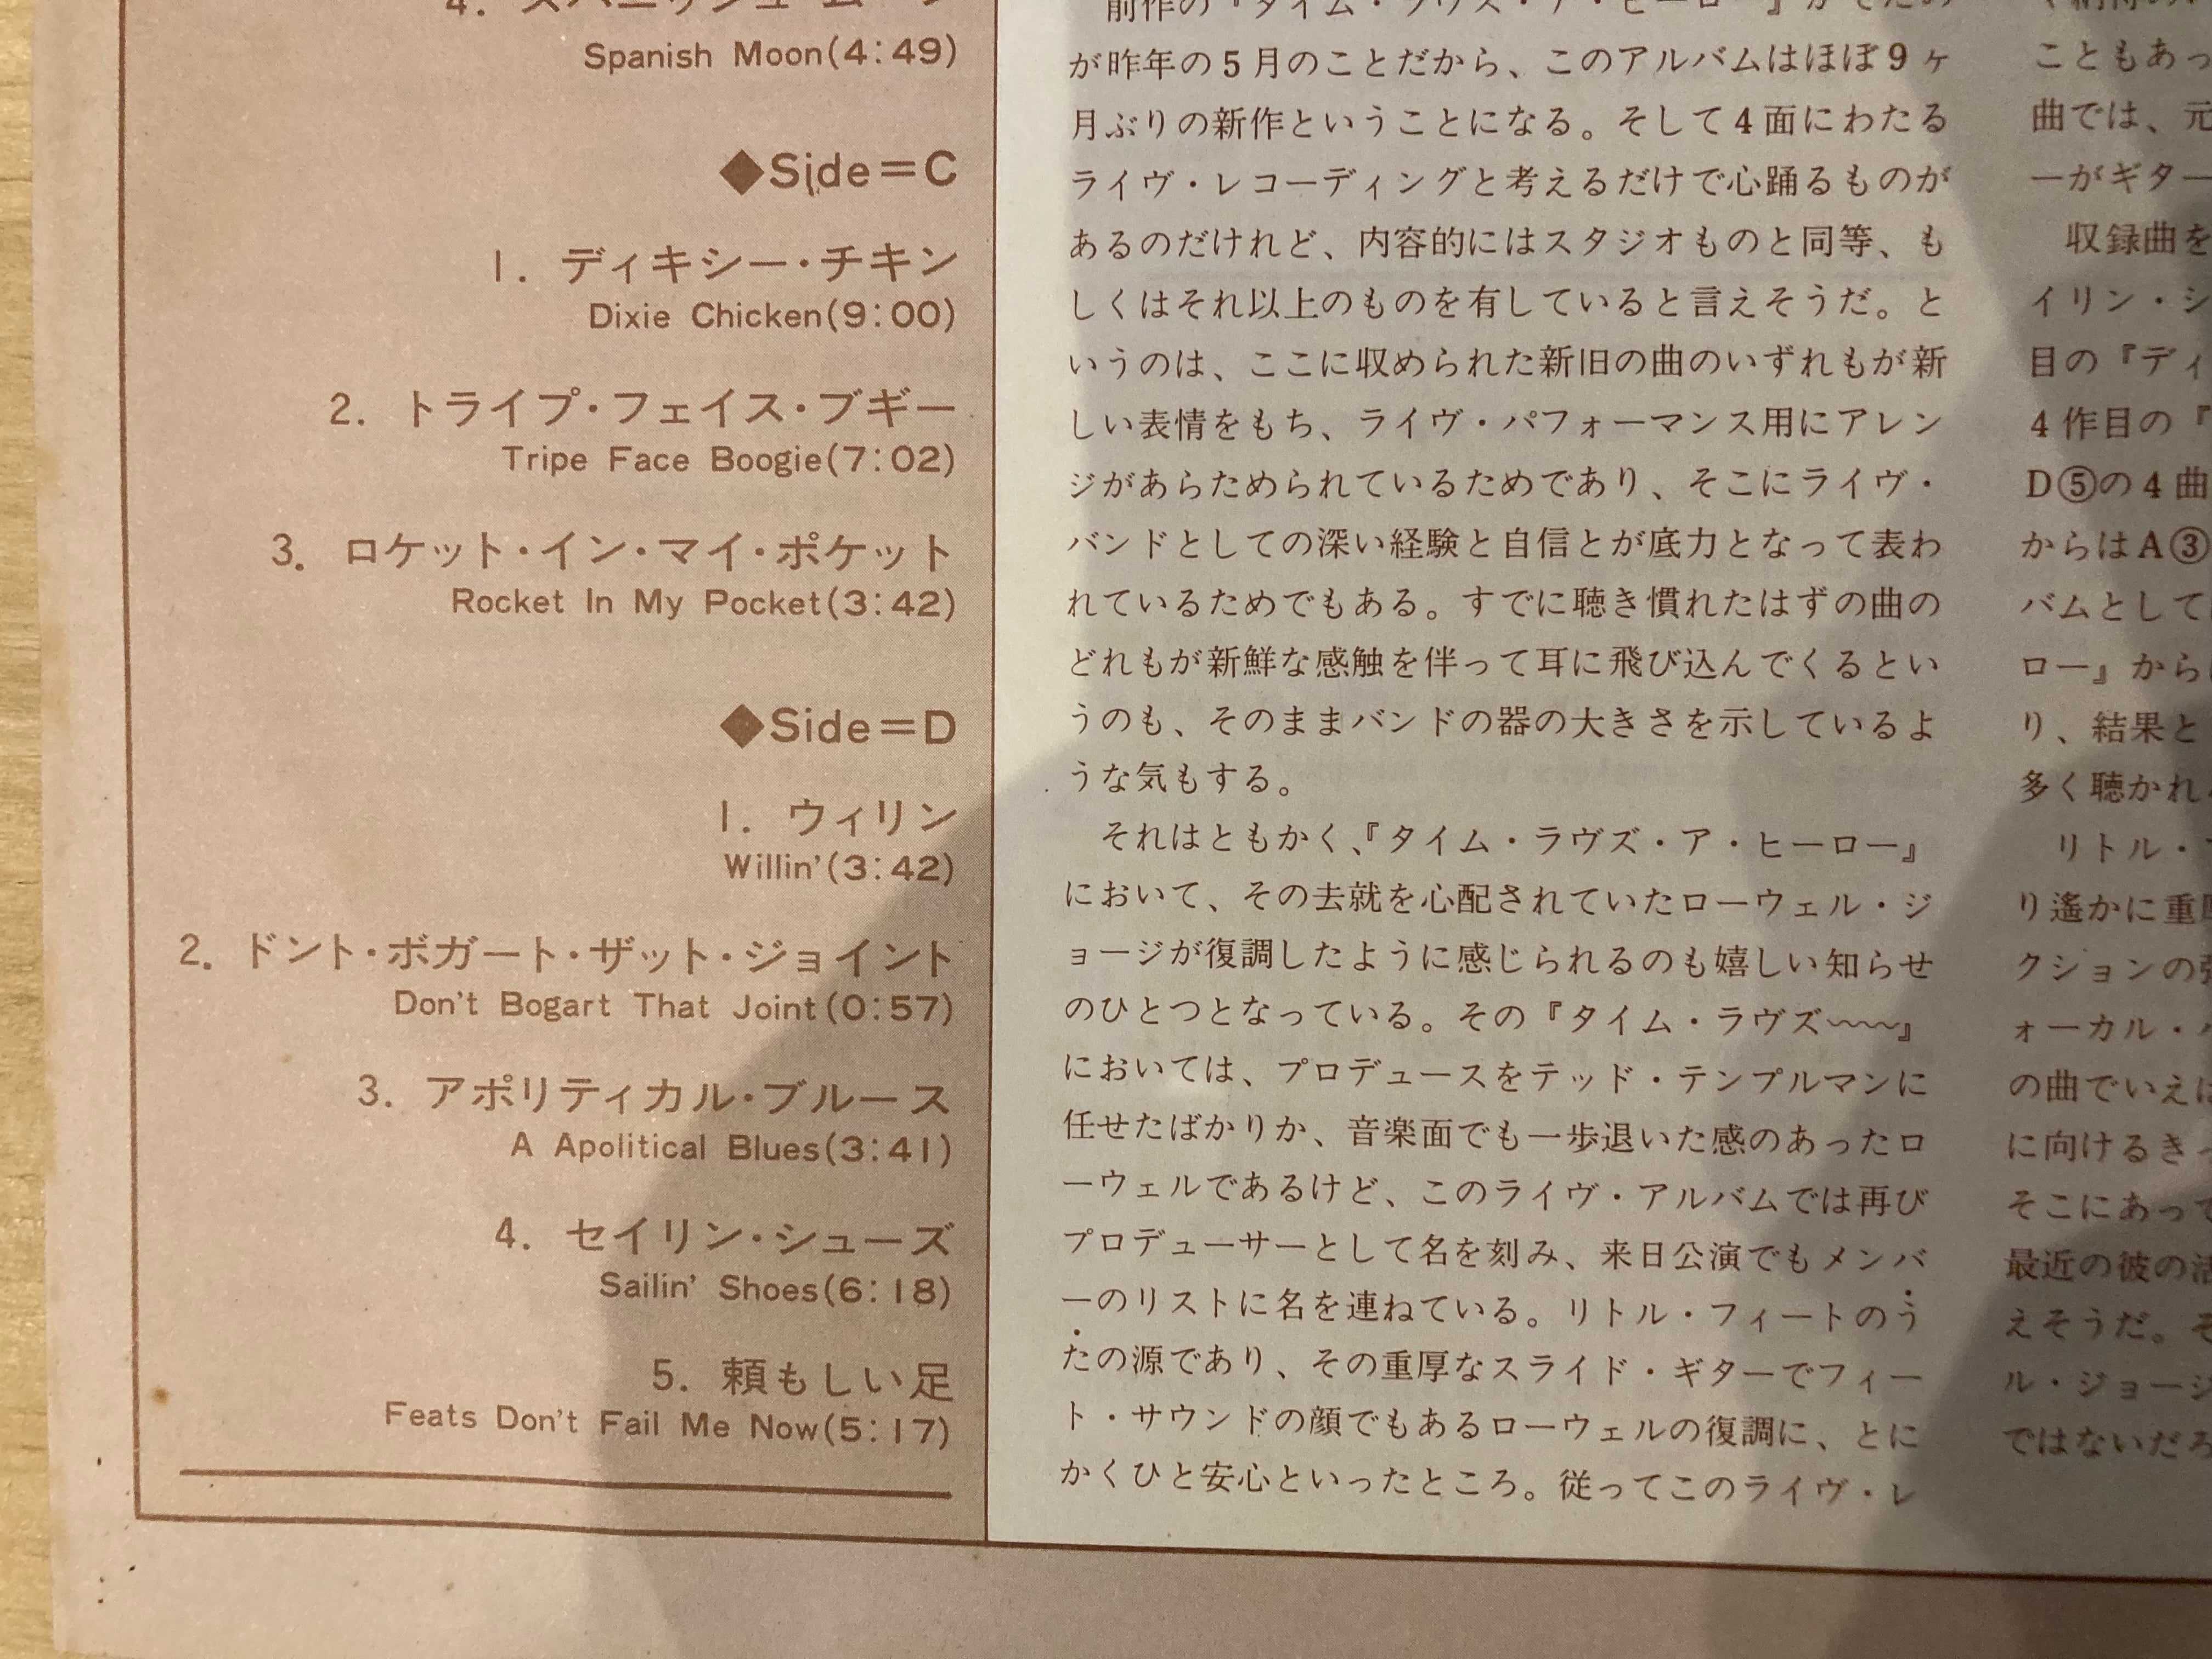 4. スパニッシュ・ムーン
Spanish Moon(4:49)
◆Side=C
1. ディキシー・チキン
Dixie Chicken(9:00)
2. トライプ・フェイス・ブギー
Tripe Face Boogie(7:02)
3. ロケット・イン・マイ・ポケット
Rocket In My Pocket(3:42)
◆Side=D
1. ウィリン
Willin'(3:42)
2. ドント・ボガート・ザット・ジョイント
Don't Bogart That Joint(0:57)
3. アポリティカル・ブルース
A Apolitical Blues(3:41)
4. セイリン・シューズ
Sailin' Shoes(6:18)
5. 頼もしい足
Feats Don't Fail Me Now(5:17)
前作の『タイム・ラヴズ・ア・ヒーロー』がでたの
が昨年の5月のことだから、このアルバムはほぼ9ヶ
月ぶりの新作ということになる。そして4面にわたる
ライヴ・レコーディングと考えるだけで心踊るものが
あるのだけれど、内容的にはスタジオものと同等、も
しくはそれ以上のものを有していると言えそうだ。と
いうのは、ここに収められた新旧の曲のいずれもが新
しい表情をもち、ライヴ・パフォーマンス用にアレン
ジがあらためられているためであり、そこにライヴ・
バンドとしての深い経験と自信とが底力となって表わ
れているためでもある。すでに聴き慣れたはずの曲の
どれもが新鮮な感触を伴って耳に飛び込んでくるとい
うのも、そのままバンドの器の大きさを示しているよ
うな気もする。
それはともかく、『タイム・ラヴズ・ア・ヒーロー』
において、その去就を心配されていたローウェル・ジ
ョージが復調したように感じられるのも嬉しい知らせ
のひとつとなっている。その『タイム・ラヴズ〜〜』
においては、プロデュースをテッド・テンプルマンに
任せたばかりか、音楽面でも一歩退いた感のあったロ
ーウェルであるけど、このライヴ・アルバムでは再び
プロデューサーとして名を刻み、来日公演でもメンバ
ーのリストに名を連ねている。リトル・フィートのう
たの源であり、その重厚なスライド・ギターでフィー
ト・サウンドの顔でもあるローウェルの復調に、とに
かくひと安心といったところ。従ってこのライヴ・レ
こともあっ
曲では、元
ーがギター
収録曲を
イリン・シ
目の『ディ
4作目の『
D⑤の4曲
からはA③
バムとして
ロー』から
り、結果と
多く聴かれ
リトル・
り遙かに重厚
クションの強
ォーカル・
の曲でいえば
に向けるきっ
そこにあって
最近の彼の活
えそうだ。そ
ル・ジョージ
ではないだろ